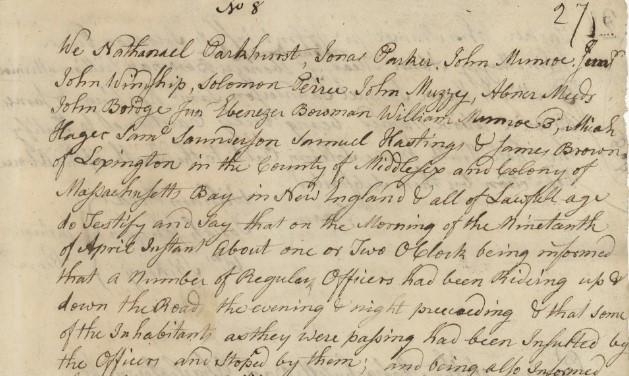 No 8
27
We Nathanael Parkhurst, Jonas Parker, John Munroe, Junr
John Windship, Solomon Peirce, John Muzzey, Abner Meeds
John Bridge Jun Ebenezer Bowman William Munroe 3, Micah
Hager Saml Saunderson Samuel Hastings & James Brown
of Lexington in the County of Middlesex and Colony of
Massachusetts Bay in New England & all of Lawfull age
do Testify and Say that on the Morning of the Ninetanth
of April Instant About one or Two OClock being informed
that a Number of Regular Officers had been Rideing up &
down the Road the evening & night preceeding & that some
of the Inhabitants as they were passing had been Insulted by
the Officers and Stoped by them; and being also Informed